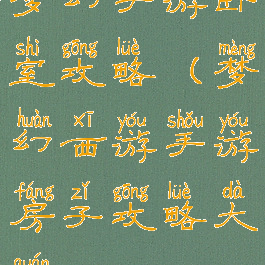 梦幻手游卧
shì gōng lüè mèng
室攻略(梦
huàn xī yóu shǒu yóu
幻西游手游
fáng zǐ gōng lüè dà
房子攻略大
quán